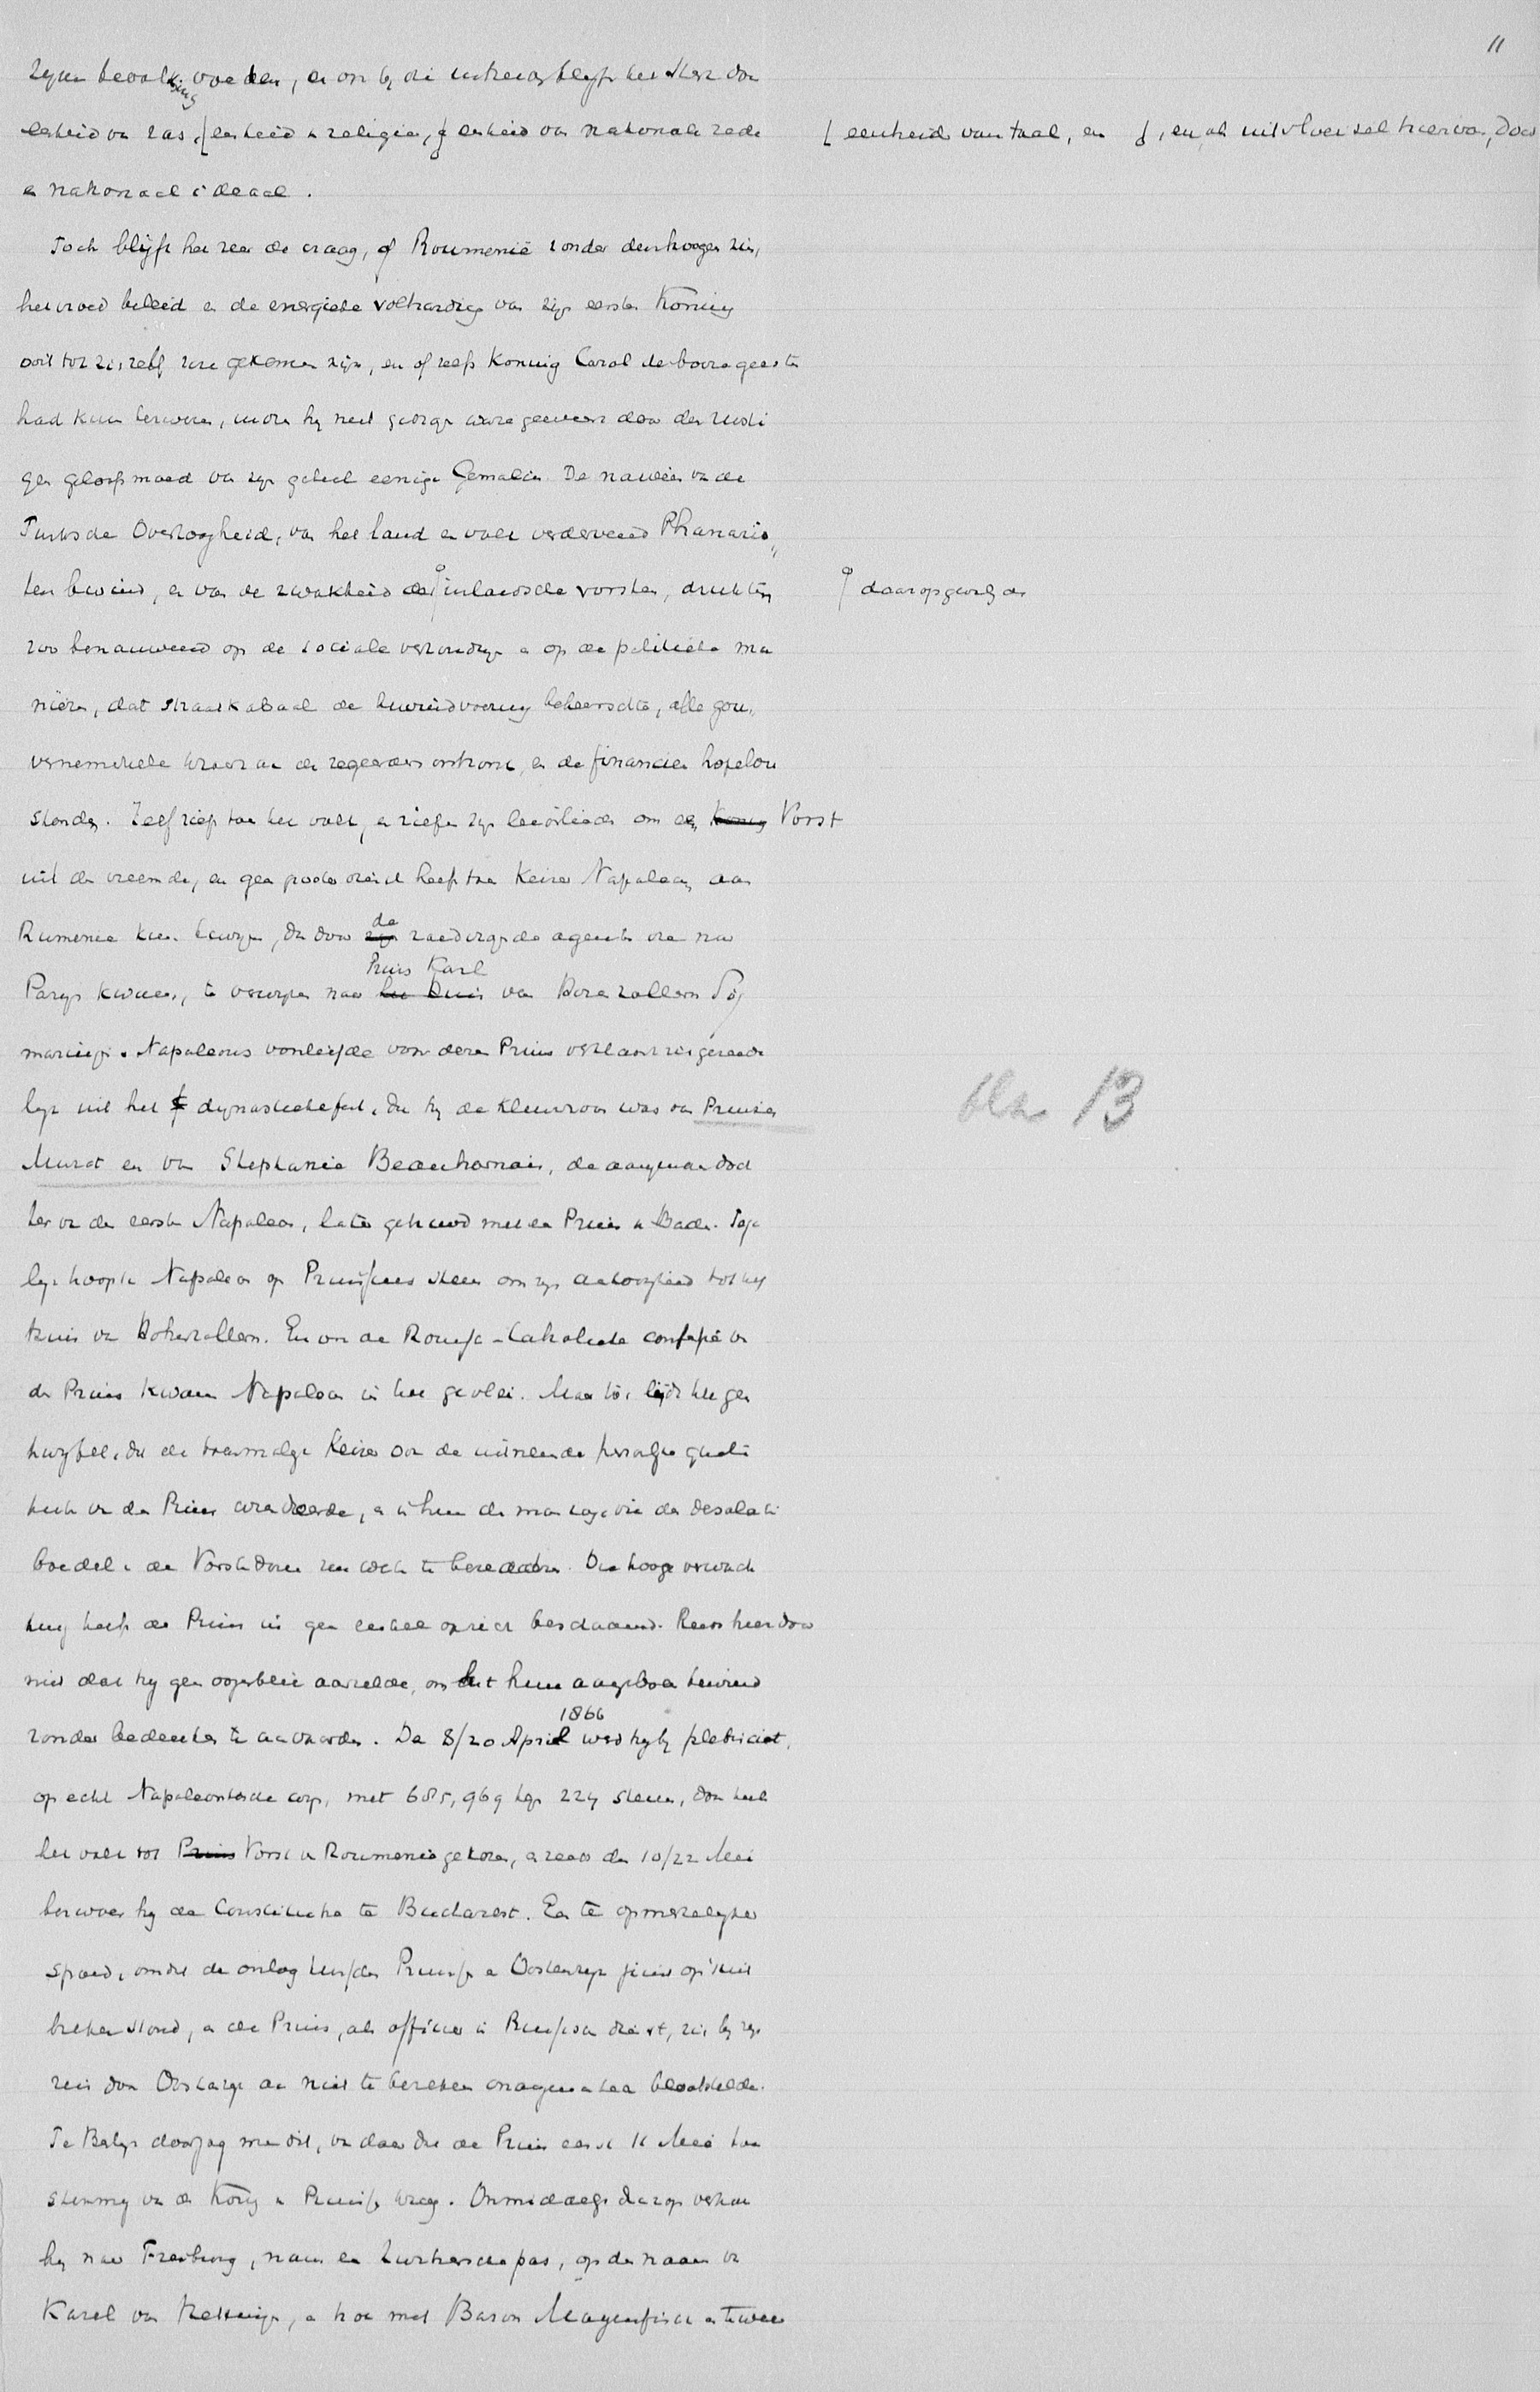 11
zijn bevolking voeden, en om bij die intrek blijft het sterk door
eenheid van ras, ⌊ eenheid in religie, ⌡ eenheid van nationale zede
⌊ eenheid van taal, en ⌡, en, als uitvloeisel hiervan, door
en nationaal ideaal.
Toch blijft het zeer de vraag, of Roumenië zonder den hoogen zin,
het vroed beleid en de energieke volharding van zijn eersten Koning
ooit tot zichzelf zou gekomen zijn, en of zelfs Koning Carol de booze geesten
had kunnen bezweren, indien hij niet gesterkt ware geweest door den rusti
gen geloofsmoed van zijn geheel eenige Gemalin. De naweeën van de
Turksche Overhoogheid, van het land en volk verdervend Phanario„
ten bewind, en van de zwakheid der ⌠ inlandsche vorsten, drukten
⌠ daaropgevolgde
zoo benauwend op de sociale verhoudingen en op de politieke ma
nieren, dat straatkabaal de bewindvoering beheerschte, alle gou„
vernementeele kracht aan de regeerders ontzonk, en de financiën hopeloos
stonden. Zelf riep toen het volk, en riepen zijn leidslieden om een Koning Vorst
uit den vreemde, en geen grooter dienst heeft toen Keizer Napoleon aan
Rumenië kunnen bewijzen, dan door zijn de raadvragende agenten die naar
Parijs kwamen, te verwijzen naar het Huis Prins Karl van Hohenzollern Sig
maringen. Napoleons voorliefde voor dezen Prins verklaart zich gereede
lijk uit het dynastieke feit, dat hij de kleinzoon was van Prinses
Murat en van Stephanie Beauharnais, de aangenomen doch
ter van den eersten Napoleon, later gehuwd met een Prins van Baden. Tege
lijk hoopte Napoleon op Pruissens steun om zijn aanhoorigheid tot het
huis van Hohenzollern. En ook de Roomsch-Catholieke confessie van
den Prins kwam Napoleon in het gevlei. Maar toch lijdt het geen
twijfel, dat de toenmalige Keizer ook de uitnemende persoonlijke quali
teiten van den Prins waardeerde, en in hem den man zag, die den desolaten
boedel in de Vorstendommen zou weten te beredderen. Die hooge verwach
ting heeft de Prins in geen enkel opzicht beschaamd. Reeds hierdoor
niet dat hij geen oogenblik aarzelde, om het hem aangeboden bewind
zonder bedenken te aanvaarden. De 8/20 April 1866 werd hij bij plebisciet,
op echt Napoleontische wijs, met 685,969 tegen 224 stemmen, door heel
het volk tot Prins Vorst van Roumenië gekozen, en reeds den 10/22 Mei
bezwoer hij de Constitutie te Bucharest. Een te opmerkelijker
spoed, omdat de oorlog tusschen Pruisen en Oostenrijk juist op 't uit
breken stond, en de Prins, als officier in Pruisischen dienst, zich bij zijn
reis door Oostenrijk aan niet te berekenen onaangenaamheden blootstelde.
Te Berlijn doorzag men dit, van daar dat de Prins eerst 11 Mei toe
stemming van den Koning van Pruisen kreeg. Onmiddellijk daarop vertrok
hij naar Freiburg, nam een Zwitserschen pas, op den naam van
Karel van Hettingen, en trok met Baron Mayenfisch en twee
blz 13